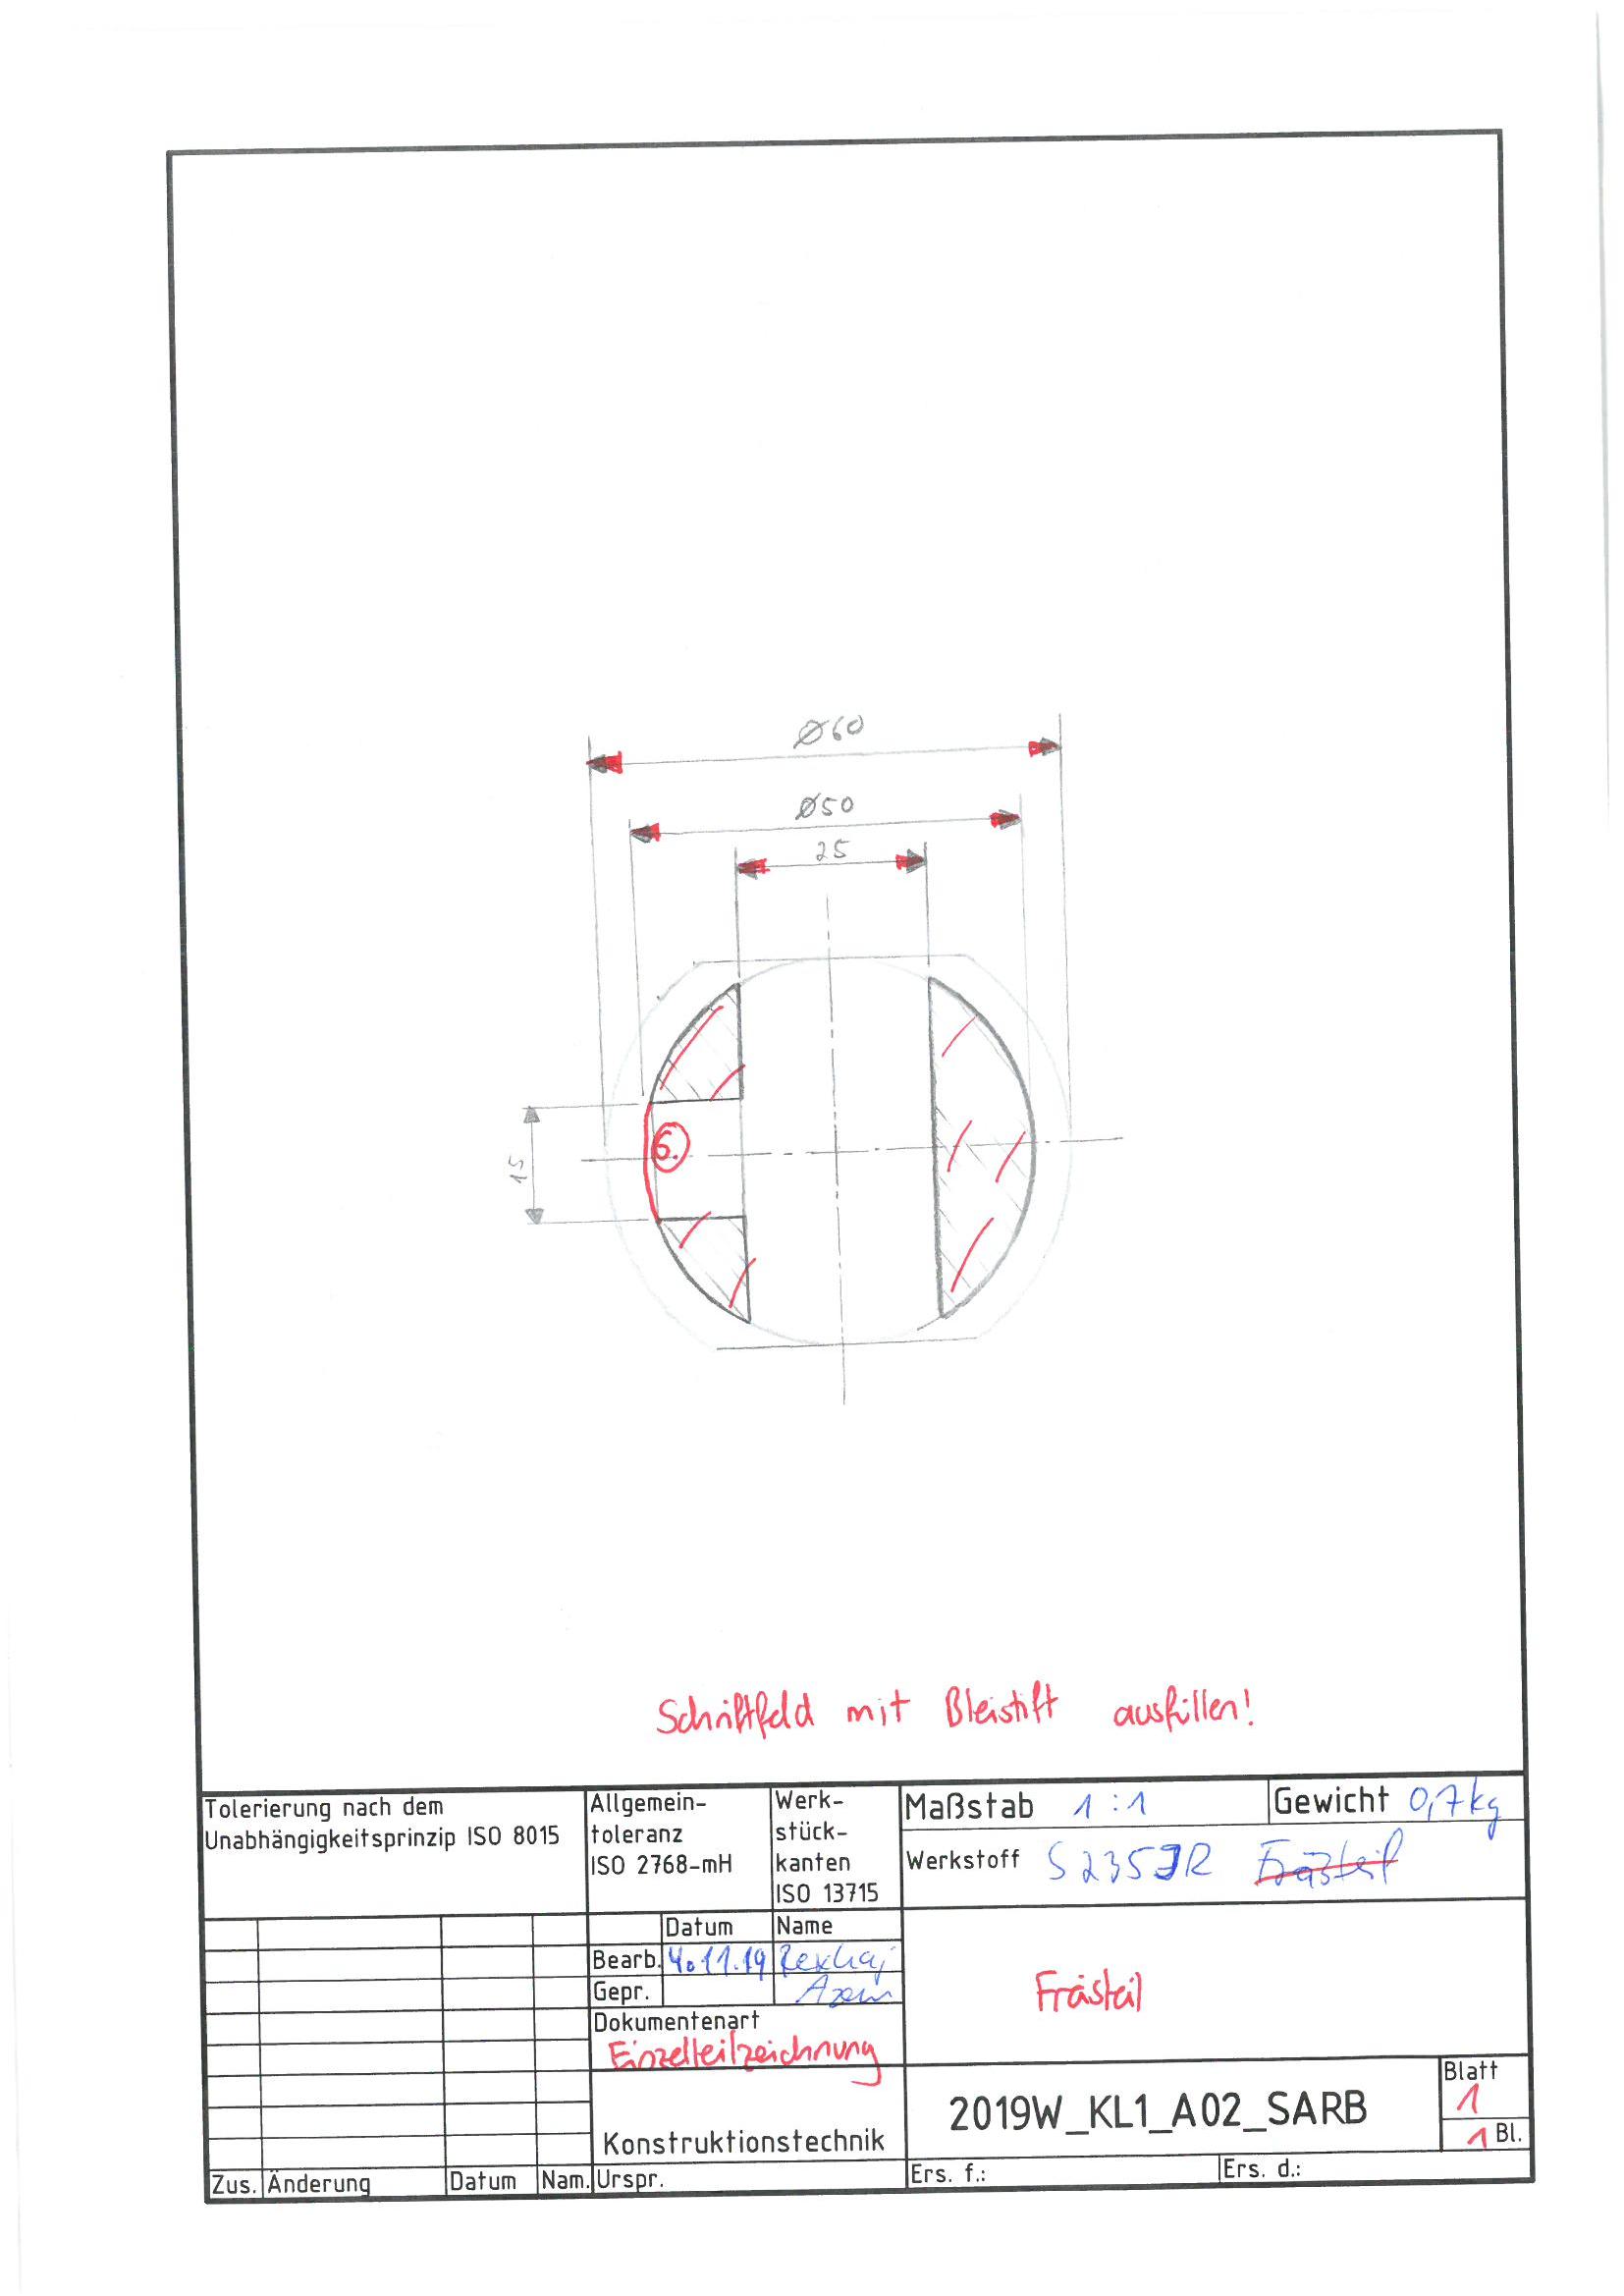 Ø60
Ø50
25
15
6.
Schriftfeld mit Bleistift ausfüllen!
Tolerierung nach dem
Unabhängigkeitsprinzip ISO 8015
Allgemein-
toleranz
ISO 2768-mH
Werk-
stück-
kanten
ISO 13715
Maßstab 1:1
Gewicht 0,7kg
Werkstoff S235JR Frästeil
Datum Name
Bearb. 4.11.19 Rexhaj
Gepr. Azem
Dokumentenart
Einzelteilzeichnung
Frästeil
Konstruktionstechnik
2019W_KL1_A02_SARB
Blatt
1
1 Bl.
Zus. Änderung Datum Nam. Urspr.
Ers. f.:
Ers. d.: